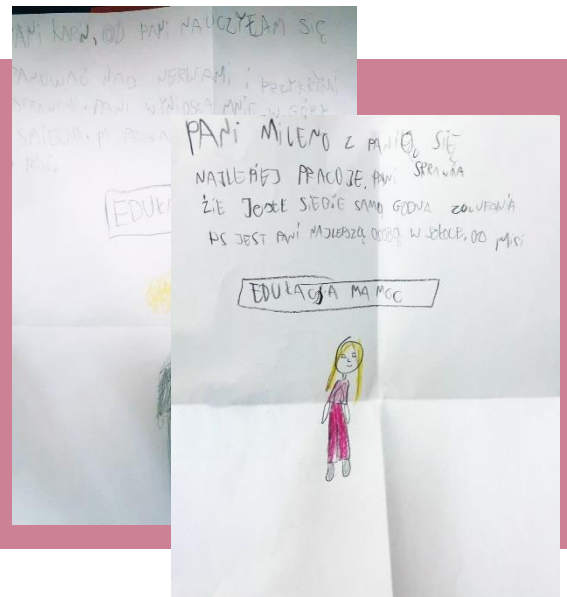 PANI KARIN, OD PANI NAUCZYŁAM SIĘ
PANOWAĆ NAD NERWAMI I
SPRAWAMI. PANI WYNIOSŁA MNIE W GÓRY
EDUKA
PANI MILENO Z PANIĄ SIĘ
NAJLEPIEJ PRACUJE, PANI SPRAWIA
ŻIE JESTĘ SIEBIE SAMO GODNA ZAUFANIA
PS JEST PANI NAJLEPSZĄ OSOBĄ W SZKOLE, OD MISI
EDUKACJA MA MOC